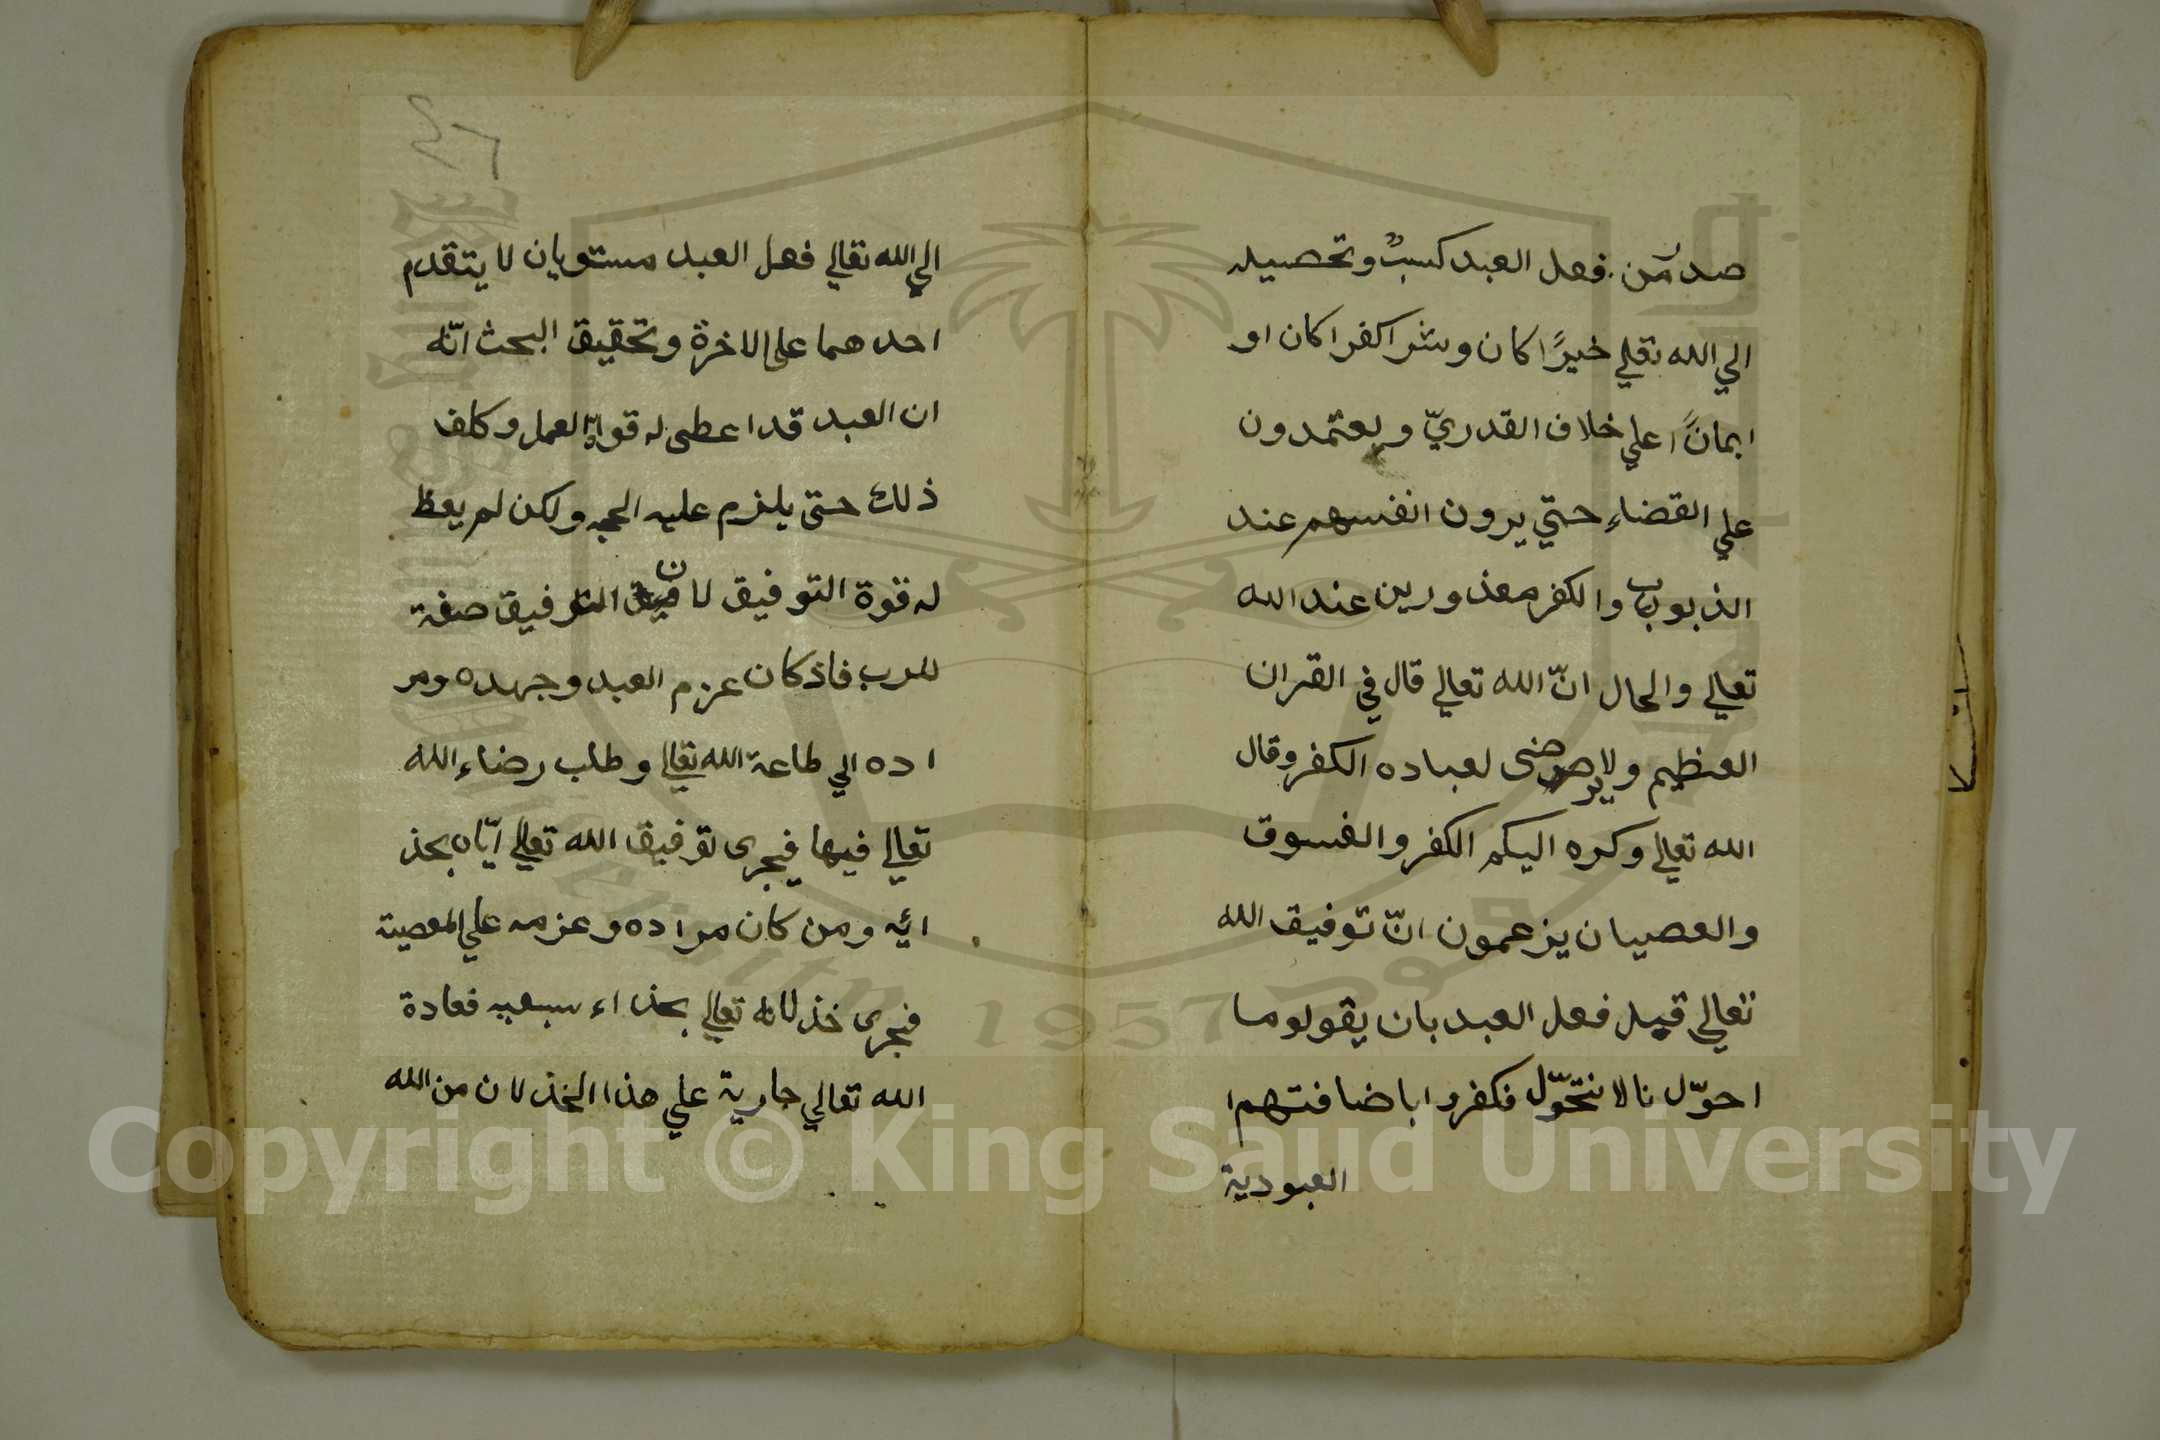 صدر من فعل العبد كسبٌ وتحصيله
الي الله تعلي خيرًا كان وشرا كفرا كان او
ايمانًا علي خلاف القدريّ ويعتمدون
علي القضاءِ حتي يرون انفسهم عند
الذبوب والكفر معذورين عند الله
تعالي والحال انّ الله تعالي قال في القران
العظيم ولا يرضى لعباده الكفر وقال
الله تعالي وكره اليكم الكفر والفسوق
والعصيان يزعمون انّ توفيق الله
تعالي قيل فعل العبد بان يقولو ما
احوّل نا لا نتحوّل فكفروا باضافتهم ا
العبودية
٤٦
الي الله تعالي فعل العبد مستويان لا يتقدم
احدهما على الاخرة وتحقيق البحث انّه
ان العبد قد اعطى له قوة العمل وكلف
ذلك حتى يلزم عليه الحجه ولكن لم يعظ
له قوة التوفيق لان التوفيق صفة
للرب فاذ كان عزم العبد وجهده ومر
اده الي طاعة الله تعالي وطلب رضاء الله
تعالي فيها فيجرى توفيق الله تعالي ايّاه بحذ
ائيه ومن كان مراده وعزمه علي المعصية
فيجرى خذلانه تعالي بحذاء سبعيه فعادة
الله تعالي جارية علي هذا الخذلان من الله
جامعة الملك سعود
King Saud University
1957
Copyright © King Saud University